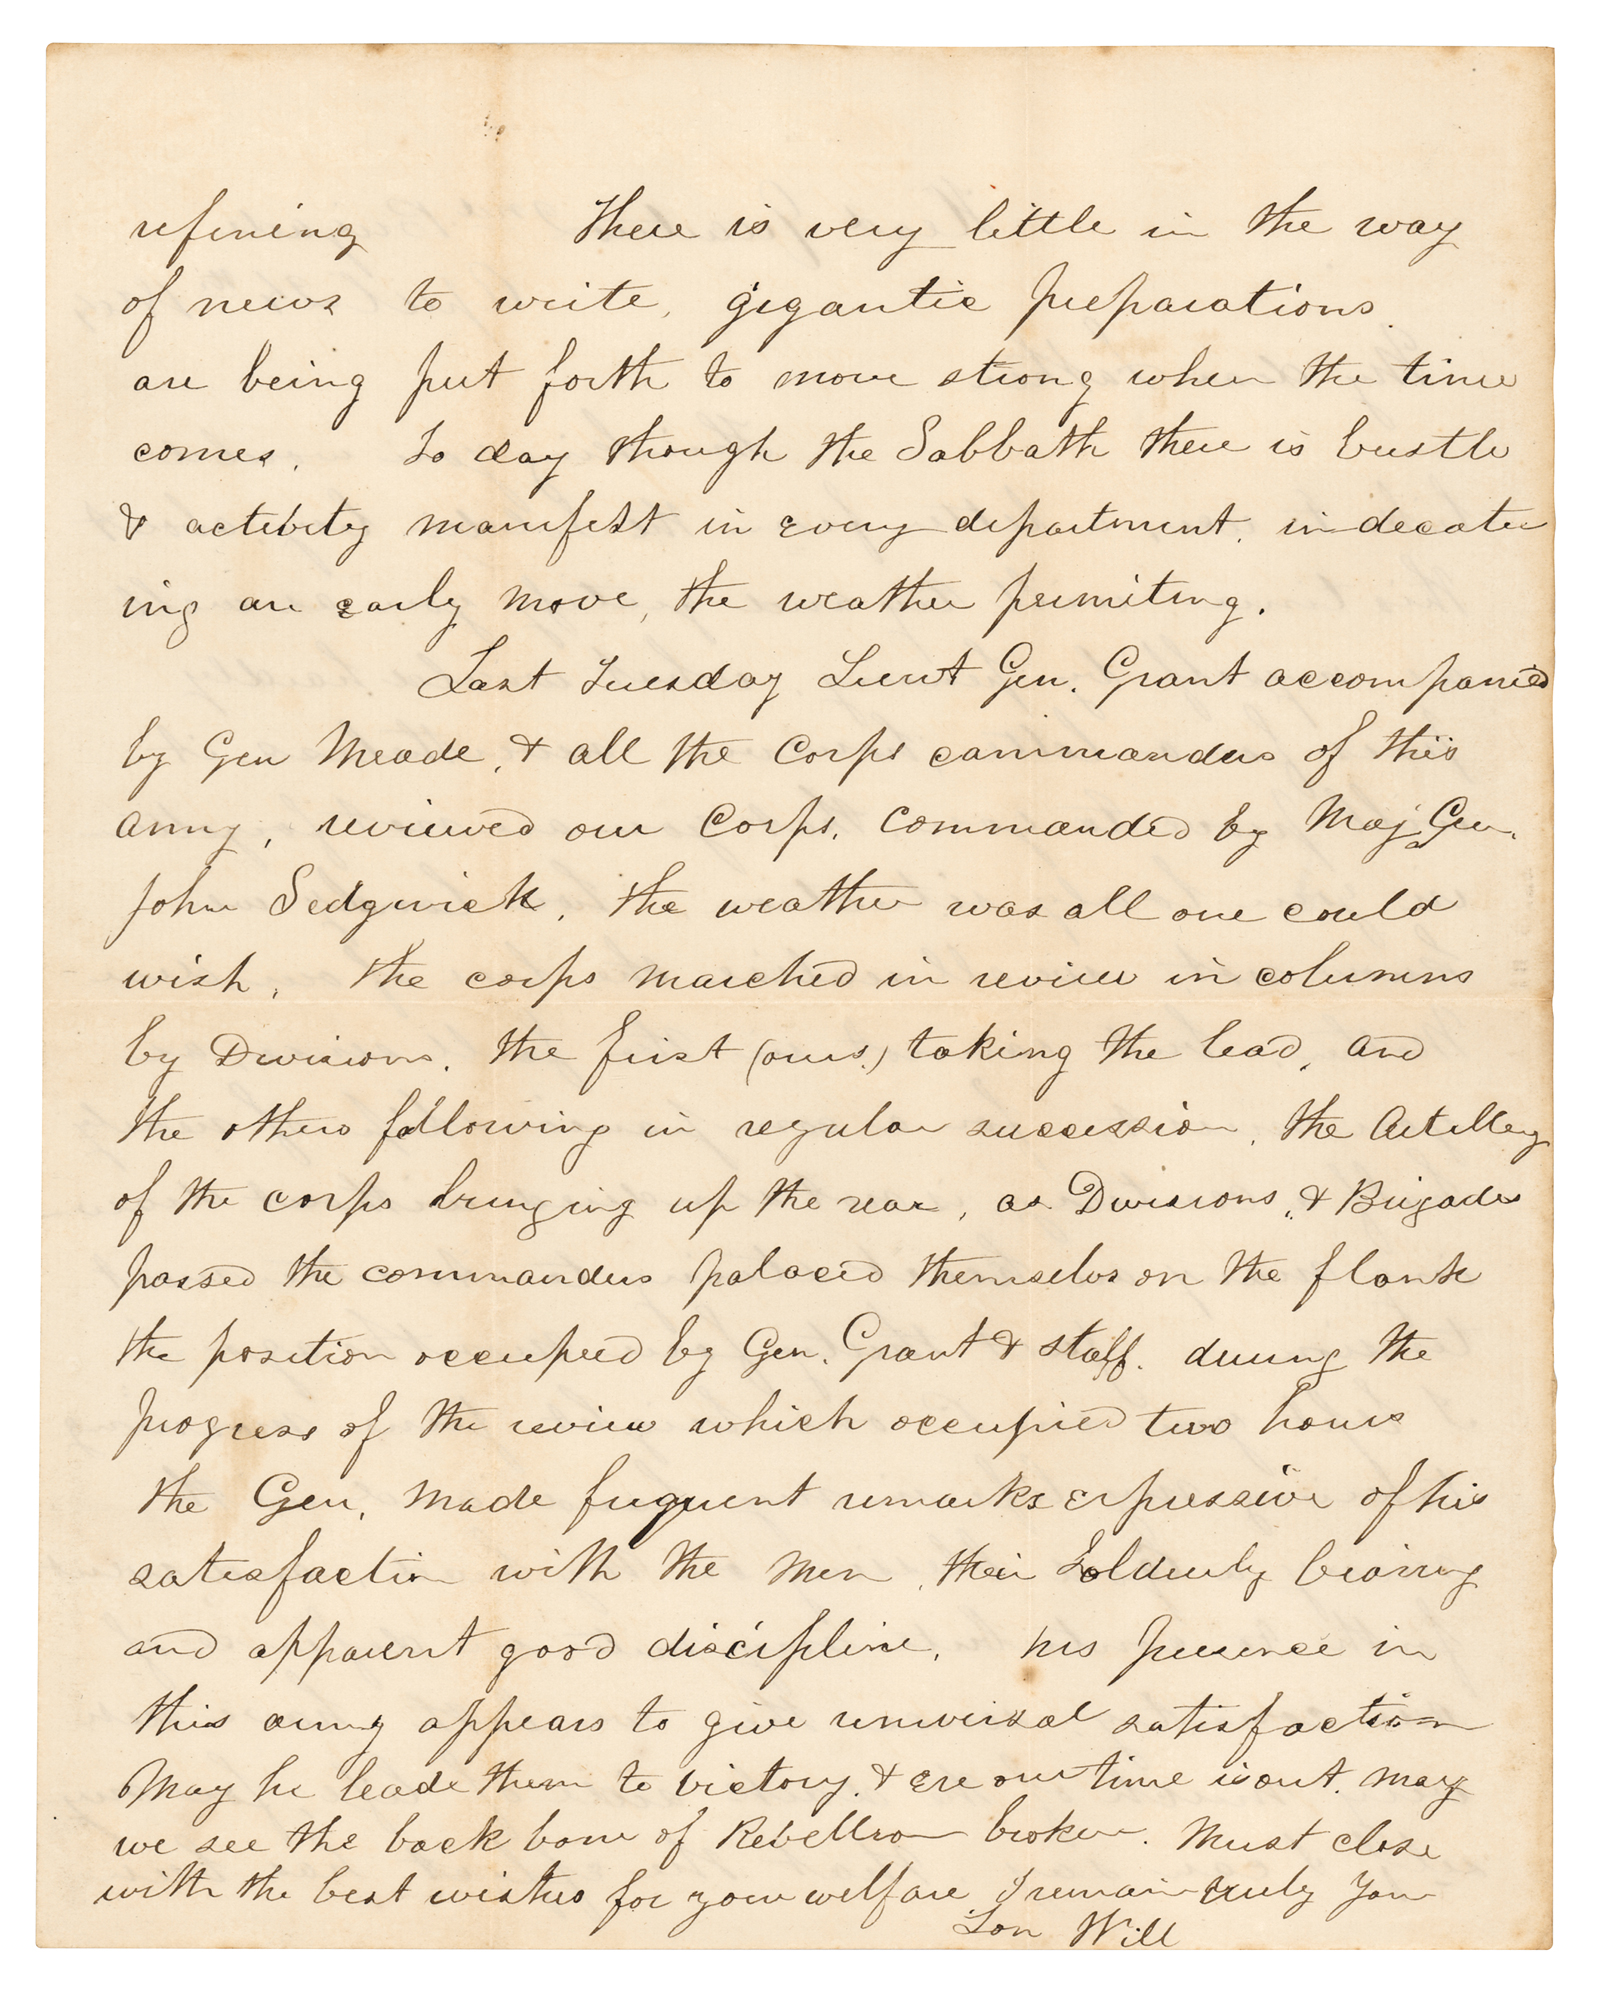 refining There is very little in the way
of news to write, gigantic preparations
are being put forth to move strong when the time
comes. To day though the Sabbath there is bustle
& activity manifest in every department, indecate
ing an early move, the weather permiting.
Last Tuesday Lieut Gen. Grant accompanied
by Gen Meade, & all the Corps commanders of this
army, reviewed our Corps, commanded by Maj. Gen.
John Sedgwick, the weather was all one could
wish, the corps marched in review in columns
by Divisions, the first (ours) taking the lead, and
the others following in regular succession, the Artillery
of the corps bringing up the rear, as Divisions, & Brigades
passed the commanders palaced themselves on the flank
the position occupied by Gen. Grant & staff. during the
progress of the review which occupied two hours
the Gen. made frequent remarks expressive of his
satisfaction with the men, their Solderly bearing
and apparent good discipline, his presence in
this army appears to give universal satisfaction
May he leade them to victory, & ere our time is out, may
we see the back bone of Rebellion broken. Must close
with the best wishes for your welfare I remain truly your
Son Will